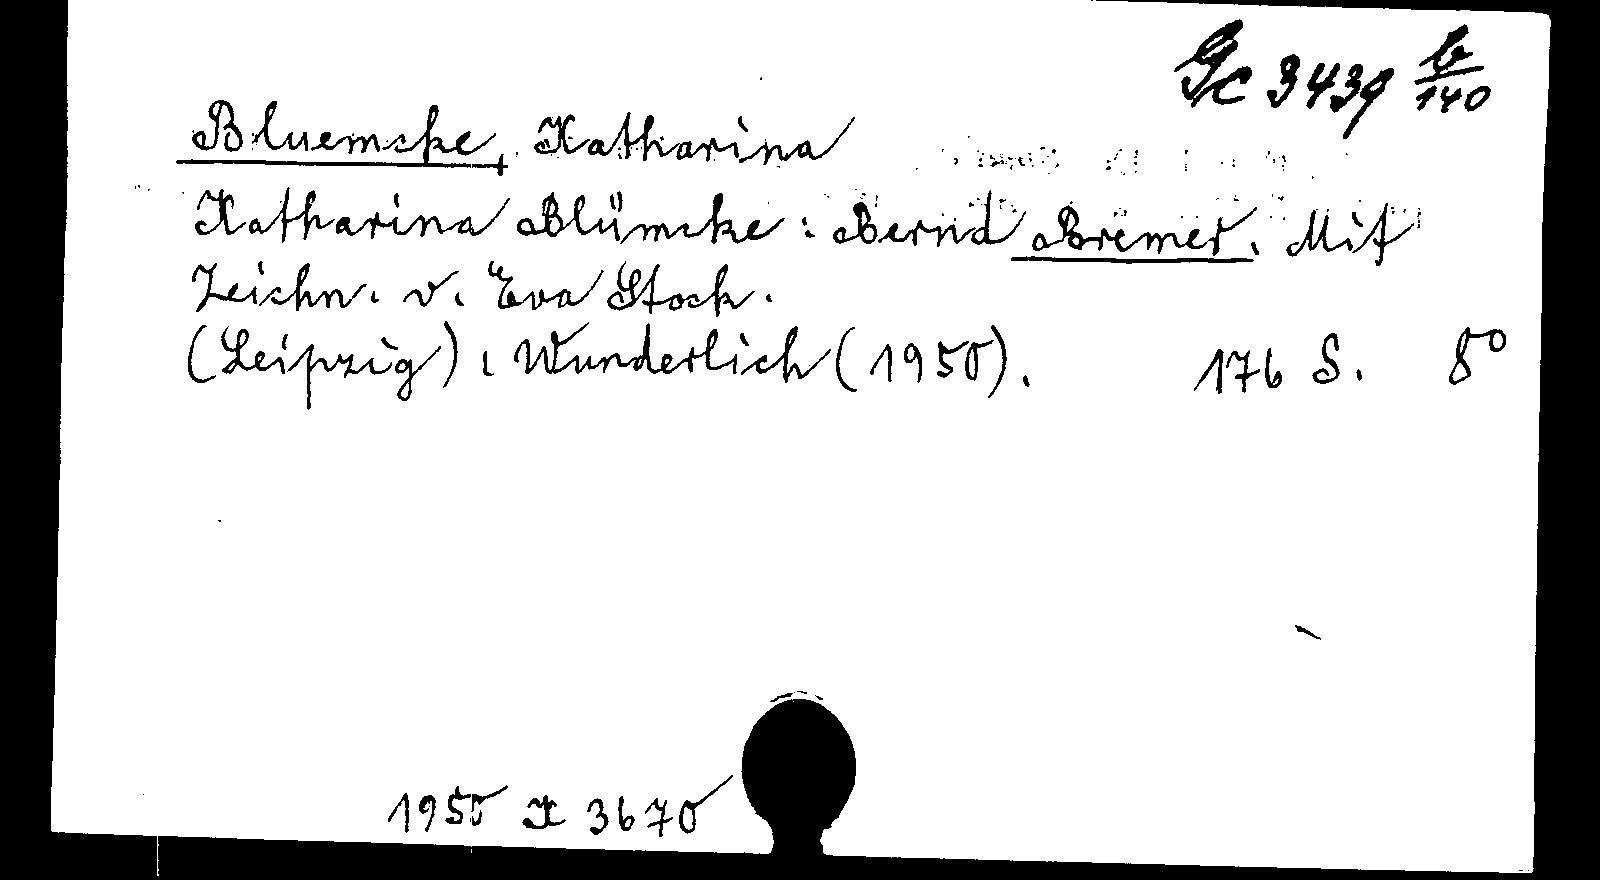 Gc 3439 b/140
Bluemcke, Katharina
Katharina Blümcke: Bernd Bremer. Mit
Zeichn. v. Eva Stock.
(Leipzig): Wunderlich (1950). 176 S. 8°
1950 K 3670